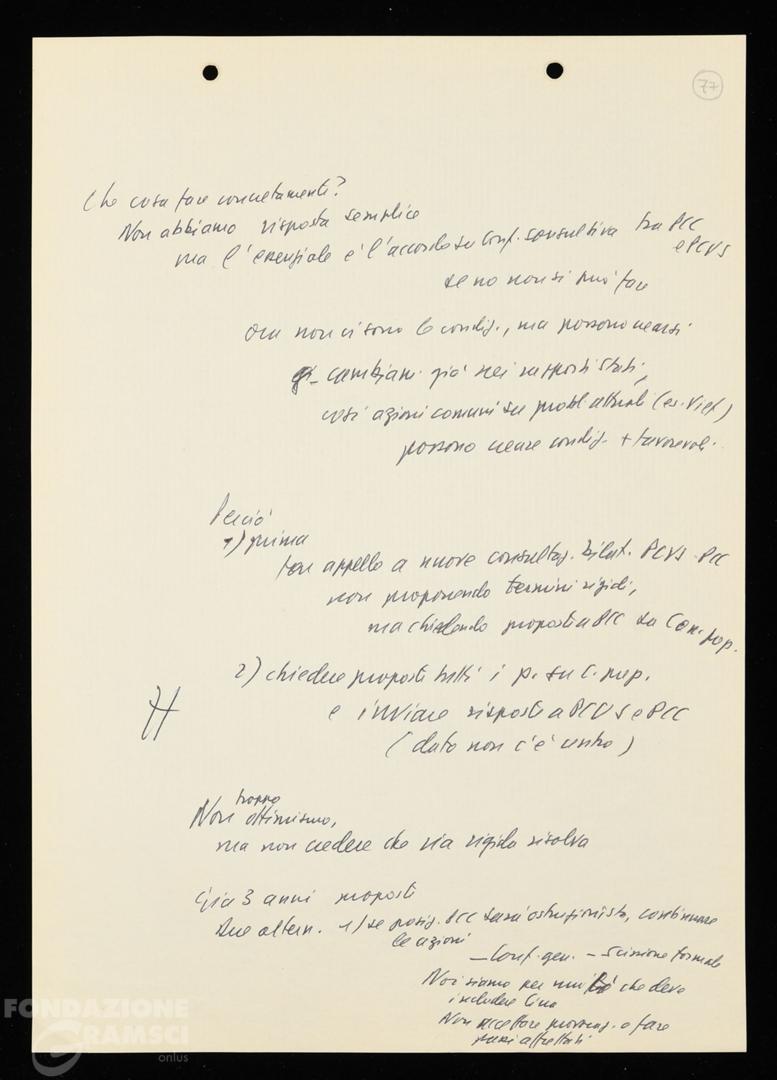 77
Che cosa fare concretamente?
Non abbiamo risposta semplice
ma l'essenziale è l'accordo su Conf. consultiva tra PCC
e PCUS
se no non si può fare
Ora non ci sono le condiz., ma possono crearsi
- cambiam. già nei rapporti stati,
così azioni comuni su probl. attuali (es. Viet)
possono creare condiz. + favorevoli.
Perciò
1) prima
fare appello a nuove consultaz. bilat. PCUS-PCC
non proponendo termini rigidi,
ma chiedendo proposti a PCC su Con. prep.
2) chiedere proposti tutti i p. su C. prep.
e inviare risposti a PCUS e PCC
(dato non c'è centro)
troppo
Non ottimismo,
ma non credere che via rigida risolva
Già 3 anni proposti
Due altern. 1) se posiz. PCC sarà ostruzionista, continuare
le azioni
- Conf. gen. - scissione formale
Noi siamo per unità che deve
includere Cina
Non accettare provocaz. e fare
passi affrettati
FONDAZIONE
GRAMSCI
onlus